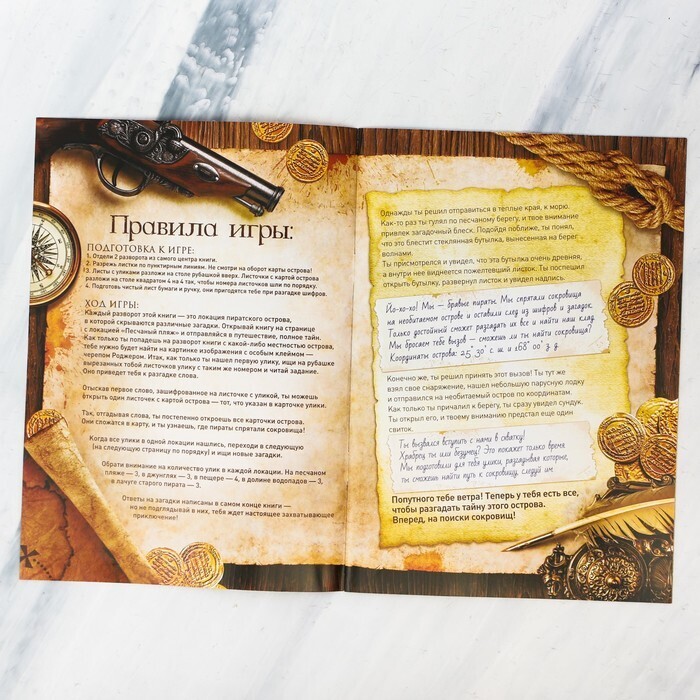 Правила игры:
ПОДГОТОВКА К ИГРЕ:
1. Отдели 2 разворота из самого центра книги.
2. Разрежь листки по пунктирным линиям. Не смотри на оборот карты острова!
3. Листы с уликами разложи на столе рубашкой вверх. Листочки с картой острова
разложи на столе квадратом 4 на 4 так, чтобы номера листочков шли по порядку.
4. Подготовь чистый лист бумаги и ручку, они пригодятся тебе при разгадке шифров.
ХОД ИГРЫ:
Каждый разворот этой книги — это локация пиратского острова,
в которой скрываются различные загадки. Открывай книгу на странице
с локацией «Песчаный пляж» и отправляйся в путешествие, полное тайн.
Как только ты попадешь на разворот книги с какой-либо местностью острова,
тебе нужно будет найти на картинке изображения с особым клеймом —
черепом Роджером. Итак, как только ты нашел первую улику, ищи на рубашке
вырезанных тобой листочков улику с таким же номером и читай задание.
Оно приведет тебя к разгадке слова.
Отыскав первое слово, зашифрованное на листочке с уликой, ты можешь
открыть один листочек с картой острова — тот, что указан в карточке улики.
Так, отгадывая слова, ты постепенно откроешь все карточки острова.
Они сложатся в карту, и ты узнаешь, где пираты спрятали сокровища!
Когда все улики в одной локации нашлись, переходи в следующую
(на следующую страницу по порядку) и ищи новые загадки.
Обрати внимание на количество улик в каждой локации. На песчаном
пляже — 3, в джунглях — 3, в пещере — 4, в долине водопадов — 3,
в лачуге старого пирата — 3.
Ответы на загадки написаны в самом конце книги —
но не подглядывай в них, тебя ждет настоящее захватывающее
приключение!
Однажды ты решил отправиться в теплые края, к морю.
Как-то раз ты гулял по песчаному берегу, и твое внимание
привлек загадочный блеск. Подойдя поближе, ты понял,
что это блестит стеклянная бутылка, вынесенная на берег
волнами.
Ты присмотрелся и увидел, что эта бутылка очень древняя,
а внутри нее виднеется пожелтевший листок. Ты поспешил
открыть бутылку, развернул листок и увидел надпись.
Йо-хо-хо! Мы — бравые пираты. Мы спрятали сокровища
на необитаемом острове и оставили след из шифров и загадок.
Только достойный сможет разгадать их все и найти наш клад.
Мы бросаем тебе вызов — сможешь ли ты найти сокровища?
Координаты острова: 25˚30' с. ш. и 168˚00' з. д.
Конечно же, ты решил принять этот вызов! Ты тут же
взял свое снаряжение, нашел небольшую парусную лодку
и отправился на необитаемый остров по координатам.
Как только ты причалил к берегу, ты сразу увидел сундук.
Ты открыл его, и твоему вниманию предстал еще один
свиток.
Ты вызвался вступить с нами в схватку!
Храбрец ты или безумец? Это покажет только время.
Мы подготовили для тебя улики, разгадывая которые,
ты сможешь найти путь к сокровищу, следуй им.
Попутного тебе ветра! Теперь у тебя есть все,
чтобы разгадать тайну этого острова.
Вперед, на поиски сокровищ!